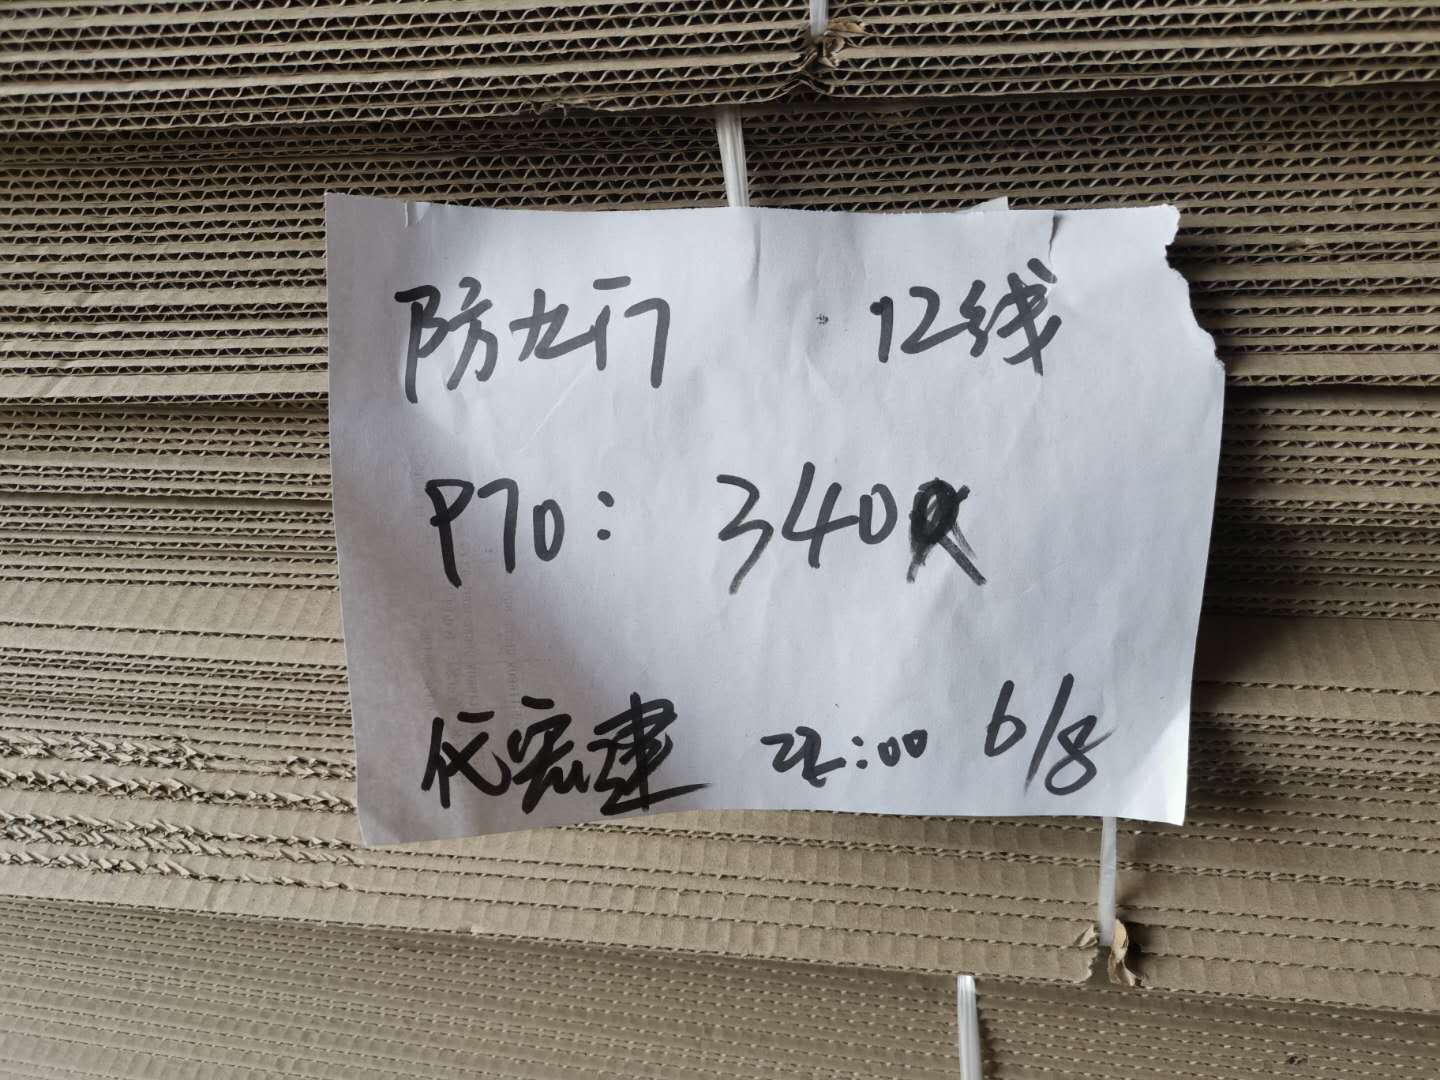 防火门 12线
P70: 340
代宏建 22:00 6/8